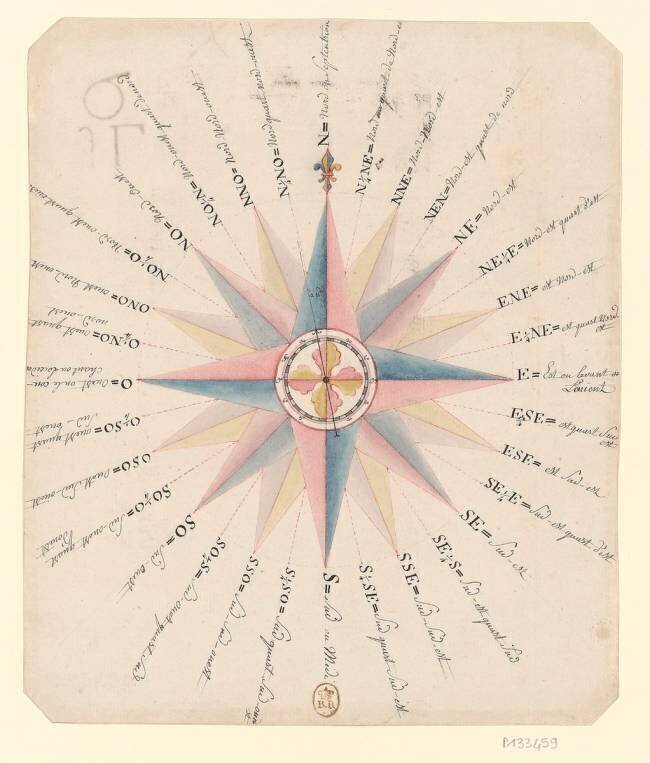 N= Nord ou Septentrion
N¼NE= Nord quart de Nord-e
NNE= Nord-Nord-est
NEN= Nord est quart de nord
NE= Nord-est
NE¼E= Nord-est quart d'est
ENE= est Nord-est
E¼NE= est-quart Nord
est
E= Est ou levant ou
L'orient
E¼SE= est quart Sud
est
ESE= est Sud-est
SE¼E= Sud-est quart d'est
SE= Sud-est
SE¼S= Sud-est quart Sud
SSE= Sud-Sud-est
S¼SE= Sud quart Sud-est
S= Sud ou Midi
S¼SO= Sud quart Sud-ou
SSO= Sud Sud-ouest
SO¼S= Sud-ouest quart Sud
SO= Sud-ouest
SO¼O= Sud-ouest quart
Douest
OSO= Ouest Sud-ouest
O¼SO= ouest quart
Sud ouest
O= Ouest ou le cou-
chant ou loccide
O¼NO= ouest quart
nord-ouest
ONO= ouest Nord ouest
NO¼O= Nord-ouest quart ouest
NO= Nord Ouest
NO¼N= Nord-ouest quart de nord
NNO= Nord Nord-ouest
N¼NO= Nord quart nord-ouest
P.133459